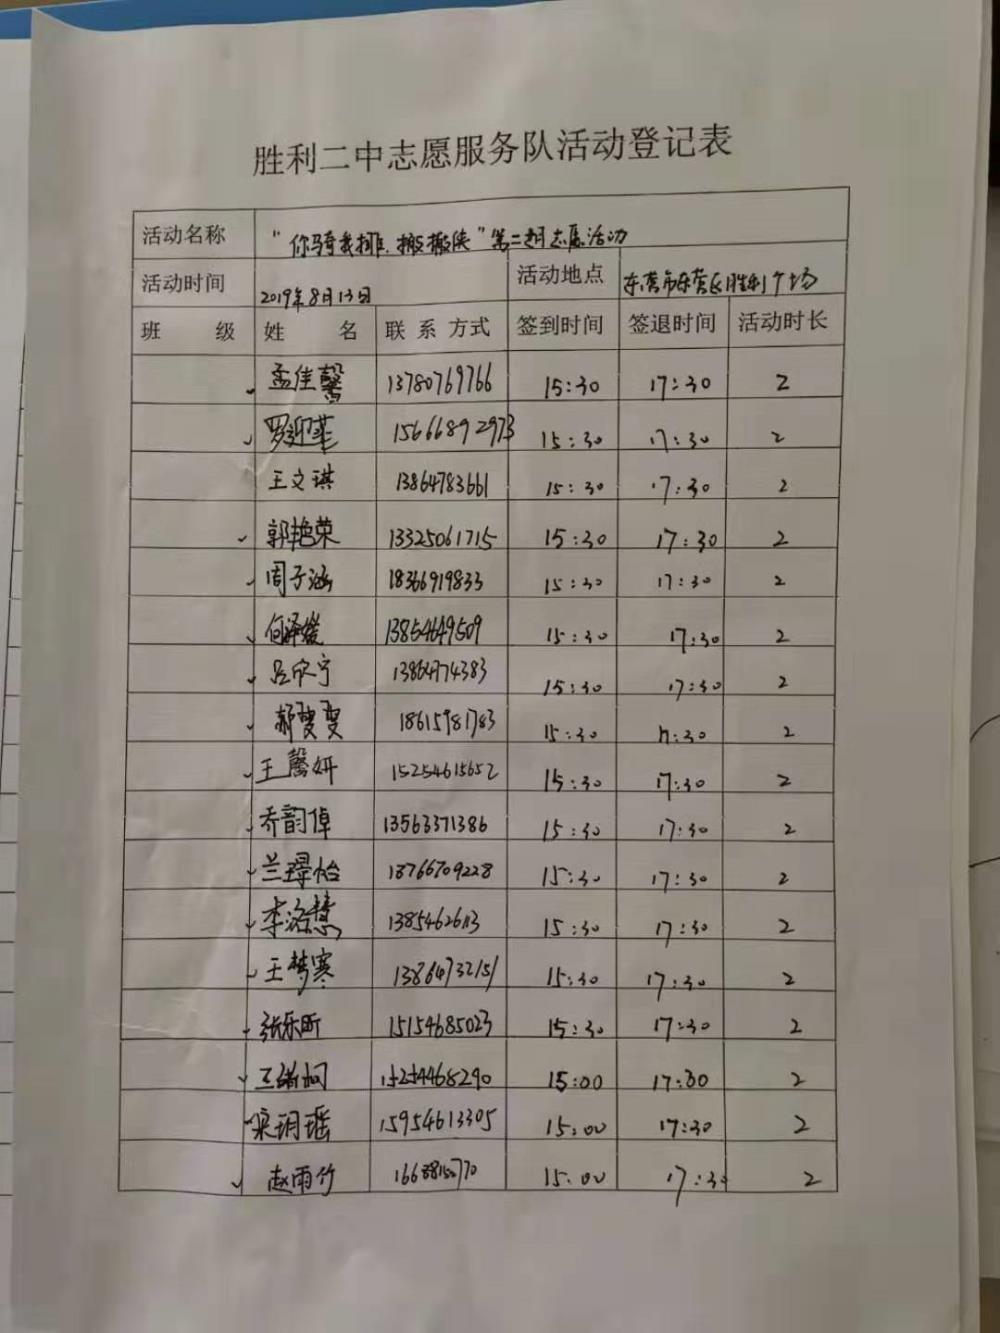 胜利二中志愿服务队活动登记表
活动名称 "你骑我排.搬搬侠"第二期志愿活动
活动时间 2019年8月13日 活动地点 东营市东营区胜利广场
班 级 姓 名 联系方式 签到时间 签退时间 活动时长
孟佳馨 13780769766 15:30 17:30 2
罗迎菲 15666892973 15:30 17:30 2
王文琪 13864783661 15:30 17:30 2
郭艳荣 13325061715 15:30 17:30 2
周子涵 18366919833 15:30 17:30 2
何泽媛 13854649509 15:30 17:30 2
吕欣宁 13864774383 15:30 17:30 2
郝雯雯 18615981783 15:30 17:30 2
王馨妍 15254615652 15:30 17:30 2
乔韵倬 13563371386 15:30 17:30 2
兰璟怡 18766709228 15:30 17:30 2
李洺慧 1385462613 15:30 17:30 2
王梦寒 13864732151 15:30 17:30 2
张乐昕 15154685023 15:30 17:30 2
15254468290 15:00 17:30 2
宋玥瑶 15954613305 15:00 17:30 2
赵雨竹 15:00 17:30 2